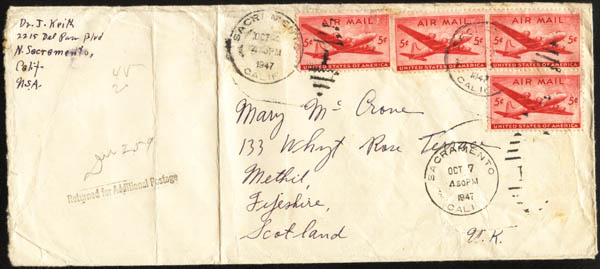 Dr. J. Keith
2215 Del Paso Blvd
N. Sacramento,
Calif.
USA.
Returned for Additional Postage
SACRAMENTO
OCT
4:30PM
1947
CALIF.
AIR MAIL
5¢ 5¢
UNITED STATES OF AMERICA
AIR MAIL
5¢ 5¢
UNITED STATES OF AMERICA
AIR MAIL
5¢ 5¢
UNITED STATES OF AMERICA
AIR MAIL
5¢ 5¢
UNITED STATES OF AMERICA
Mary Mc Crone
133 Whyt Rose Terrace
Methil,
Fifeshire,
Scotland
U.K.
SACRAMENTO
OCT 7
4:30PM
1947
CALIF.